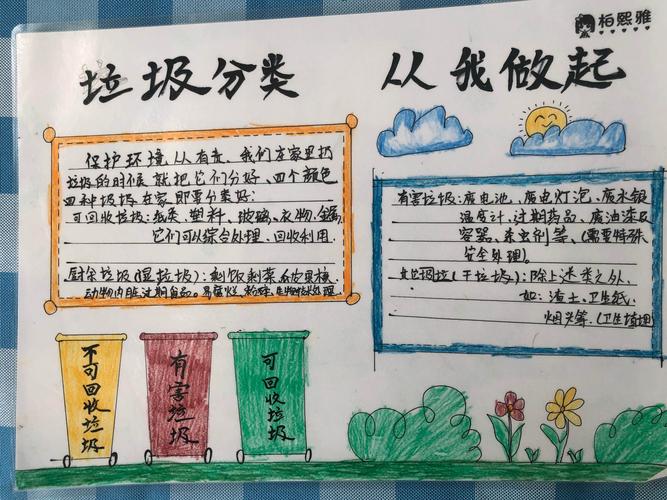 柏熙雅
垃圾分类 从我做起
保护环境、从有责、我们在家里扔
垃圾的时候 就把它们分好、四个颜色
四种垃圾在家即要分类好:
可回收垃圾:纸类、塑料、玻璃、衣物、金属,
它们可以综合处理、回收利用.
厨余垃圾(湿垃圾):剩饭剩菜
动物内脏过期食品。易腐烂、
有害垃圾:废电池、废电灯泡、废水银
温度计、过期药品、废油漆及
容器、杀虫剂等、(需要特殊
安全处理)。
(干垃圾):除上述类之外、
如:渣土、卫生纸、
烟头等、(卫生填埋)
不可回收垃圾
有害垃圾
可回收垃圾